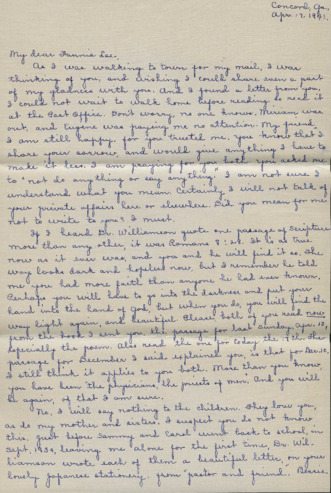 Concord, Ga.
Apr. 17, 1941.
My dear Fannie Lee.
As I was walking to town for my mail, I was
thinking of you, and wishing I could share even a part
of my gladness with you. And I found a letter from you,
I could not wait to walk home before reading so read it
at the Post Office. Don't worry, no one knows, Miriam was
out, and Eugene was paying me no attention. My friend,
I am still happy, for you trusted me. You know that I
share your sorrow, and would give any thing I have to
make it less. I am praying for you both. You asked me
to "not do anything or say anything." I am not sure I
understand what you mean. Certainly, I will not talk of
your private affairs here or elsewhere. Did you mean for me
not to write to you? I must.
If I heard Dr. Williamson quote one passage of Scripture
more than any other, it was Romans 8:28. It is as true
now as it ever was, and you and he will find it so. The
way looks dark and hopeless now, but I remember he told
me you had more faith than anyone he had ever known.
Perhaps you will have to go into the darkness and put your
hand into the hand of God, but when you do, you will find the
way light again, and beautiful. Please, both of you read now
from the book I sent you the passage for last Sunday, Apr. 13,
especially the poem. Also read the one for today the 17th. The
passage for December I said explained you, is that for Dec. 10.
I still think it applies to you both. More than you know,
you have been "the physicians, the priests of men." And you will
be again, of that I am sure.
No, I will say nothing to the children. They love you,
as do my mother and sisters. I suspect you do not know
this, just before Sammy and Carol went back to school, in
Sept. 1939, leaving me alone for the first time, Dr. Wil-
liamson wrote each of them a beautiful letter, on your
lovely Japanese stationery, from "pastor and friend." Bessie,